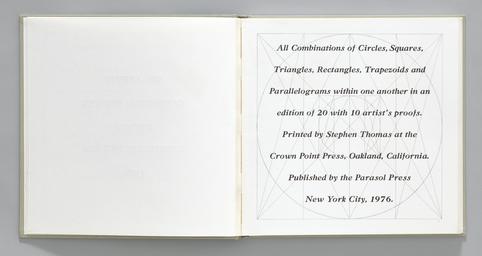 All Combinations of Circles, Squares,
Triangles, Rectangles, Trapezoids and
Parallelograms within one another in an
edition of 20 with 10 artist's proofs.
Printed by Stephen Thomas at the
Crown Point Press, Oakland, California.
Published by the Parasol Press
New York City, 1976.